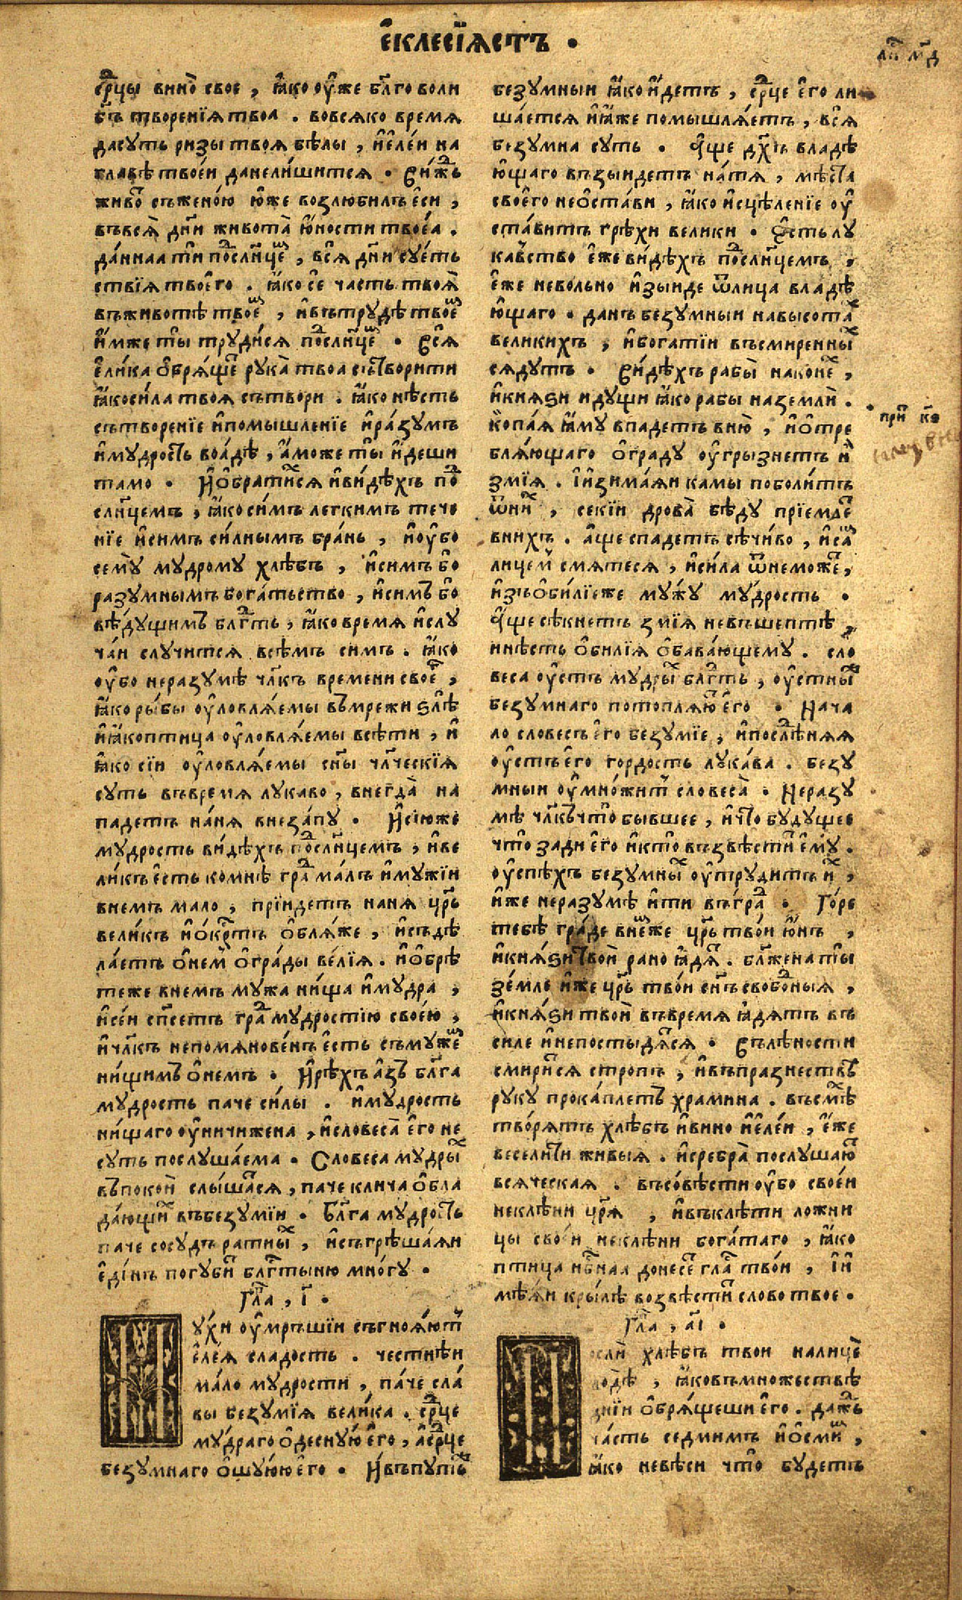 е҆клесїѧстъ •
ср҃цы вино̀ свое , ꙗ҆ко оу҆же бл҃го воли
бг҃ъ творенїѧ твоа . вовсѧко время
дасуть ризы твоѧ бѣлы , и҆е҆ле́и на
главѣ твое́и данели́шитсѧ • Ви́жⷣь
живо съжено́ю ю҆же возлюбилъ е҆си ,
въвсѧ̀ дн҃и живота̀ ю҆ности твоеа̀ .
да́ннаа ти поⷣсл҃нцеⷨ , всѧ дн҃и суе́ть
ствїѧ твоего . ꙗ҆ко сѐ часть твоѧ̀
въживотѣ твоеⷨ , и҆въ трудѣ твоеⷨ
и҆мже ты̀ труди́сѧ поⷣсл҃нцеⷨ • Всѧ
е҆ли́ка ѡ҆брѧ́щеⷮ рука̀ твоа сътвори́ти
ꙗ҆коси́ла твоѧ сътвори . ꙗ҆ко нѣсть
сътворенїе и҆помышленїе и҆ра́зумъ
и҆му́дрость воа́дѣ , а҆може ты̀ и҆деши
тамо • И҆ѡ҆брати́хсѧ и҆ви́дѣхъ поⷣ
сл҃нцемъ , ꙗ҆косимъ легкимъ тече
нїе и҆симъ си́лнымъ бра́нь , и҆оу҆бо
сему̀ му́дрому хлѣбъ , и҆симъ бо
разумнымъ бога́тьство , и҆симъ бо
вѣ́дущимъ блгⷣть , ꙗ҆ко время и҆слу
чаи случи́тсѧ всѣмъ симъ . ꙗ҆ко
оу҆бо неразумѣ чл҃къ времени своеⷢ ,
ꙗ҆ко рыбы оу҆ловлѧ́емы въмрежи ѕлѣ
и҆ꙗ҆коптица оу҆ловлѧ́емы всѣти , и҆
ꙗ҆ко сїи оу҆ловлѧ́емы сн҃ы чл҃ческїѧ
суть въвремѧ лукаво , внегда̀ на
падетъ на́нѧ внеза́пу • И҆сїюже
мудрость ви́дѣхъ поⷣсл҃нцемъ , и҆ве
ликъ е҆сть комнѣ граⷣ малъ и҆мужїи
внемъ мало , прїидетъ нанѧ цр҃ь
великъ и҆ѡ҆кртⷭъ ѡ҆блѧ́же , и҆съдѣ
лаетъ ѡ҆немъ ѡ҆гра́ды ве́лїѧ . и҆ѡ҆брѣ
теже внемъ мужа ни́ща и҆мудра ,
и҆се́и сп҃сетъ граⷣ мудростїю своею ,
и҆чл҃къ непомѧнове́нъ е҆сть съмужеⷨ
ни́щимъ ѡ҆немъ • И҆рѣхъ а҆зъ бл҃га
мудрость паче си́лы . и҆мудрость
ни́щаго оу҆ничижена , и҆словеса̀ е҆го̀ не
суть послуша́ема • Словеса мудрыⷯ
въпокои слы́шатсѧ , паче клича ѡ҆бла
да́ющиⷯ въбезумїи • Бл҃га мудрость
паче сосудъ ратныⷯ , и҆съгрѣша́ѧи
е҆ди́нъ погубиⷮ бл҃гтыню мно́гу •
Гла̀ , і҃ .
Мухи оу҆ме́ршїи съгноѧ́ютъ
е҆ле́ѧ сладость . честнѣи
ма́ло мудрости , па́че сла́
вы безумїѧ велика . ср҃це
му́драго ѡ҆десную е҆го , а҆ср҃це
безумнаго ѡ҆шуюю е҆го • И҆въпутⷯ
безумныи ꙗ҆ко и҆детъ , ср҃це е҆го ли
ша́етсѧ и҆ꙗ҆же помышлѧ́етъ , всѧ
безумна суть • А҆ще дх҃ъ владѣ
ю҆щаго възы́идетъ на́тѧ , мѣста
своего̀ неѡ҆ста́ви , ꙗ҆ко и҆сцѣленїе оу҆
ста́витъ грѣхи велики • Е҆сть лу
ка́вство е҆же ви́дѣхъ поⷣсл҃нцемъ ,
е҆же невольно и҆зыиде ѿлица владѣ
ю҆щаго • данъ безумныи навысотаⷯ
великихъ , и҆богатїи въсмиренныⷯ
сѧдутъ . Ви́дѣхъ рабы̀ наконеⷯ ,
и҆кнѧѕи идущи ꙗ҆ко рабы наземлѝ .
Копаѧ ꙗ҆му впадетъ вню̀ , и҆ѡ҆тре
блѧ́ющаго ѡ҆гра́ду оу҆грызнетъ и҆̀
змїѧ . И҆зима́ѧи камы поболи́тъ
ѿниⷯ , секїи дрова̀ бѣду прїемлеⷮ
внихъ . а҆ще спадетъ сѣчи́во , и҆саⷨ
лицеⷨ смѧтесѧ , и҆си́ла ѿнеможеⷮ ,
и҆зъѡ҆би́лїеже му́жу му́дрость •
А҆ще сѣкнетъ змїѧ невъшептѣ ,
инѣсть ѡ҆билїѧ ѡ҆бава́ющему . сло
веса оу҆стъ мудрыⷯ блгⷣть , оу҆стныⷤ
безумнаго потоплѧ́юⷮ е҆го • Нача
ло словесъ е҆го безумїе , и҆послѣ́днѧѧ
оу҆стъ е҆го гордость лука́ва . безу
мныи оу҆мно́житъ словеса̀ . Неразу
мѣ чл҃къ что̀ бывшее , и҆что бу́дущее
что̀ зади е҆го̀ и҆кто̀ възвѣсти́тъ е҆му̀ .
оу҆спѣхъ безумныⷯ оу҆труди́тъ и҆̀ ,
и҆же неразумѣ и҆ти въграⷣ • Го́ре
тебѣ гра́де внеⷨже цр҃ь твои ю҆нъ ,
и҆кнѧѕи твои рано ꙗ҆дѧⷮ . бл҃жена ты̀
земле и҆же цр҃ь твои сн҃ъ свобоⷣныѧ ,
и҆кнѧѕи твоѝ въвремѧ ꙗ҆дѧтъ въ
силе и҆непостыдѧ́тсѧ • Въ лѣности
смири́тсѧ стропъ , и҆въпразнествѣ
руку прока́плетъ храмина . въсмѣⷯ
творѧ́тъ хлѣбъ и҆вино и҆е҆ле́и , е҆́же
весели́ти живыѧ . и҆сребра̀ послушаюⷮ
всѧческаѧ . въсо́вѣсти оу҆бо свое́и
неклѣни цр҃ѧ , и҆въклѣти ложни
цы свое́и неклѣни бога́таго , ꙗ҆ко
птица нб҃наа донесеⷮ глаⷭ҇ твои , и҆и҆
мѣ́ѧи крылѣ возвѣсти́тъ слово твое •
Гла̀ , а҃і .
Послѝ хлѣбъ твои налицѐ
водѣ , ꙗ҆ковъмножествѣ
днїи ѡ҆брѧ́щеши е҆го . даждь
часть седмимъ и҆ѡ҆смиⷨ ,
ꙗ҆ко невѣси что̀ будетъ